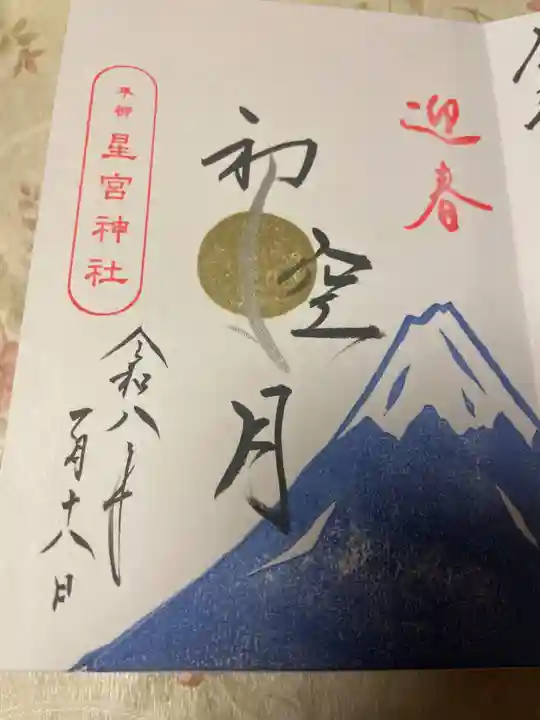 迎春
初空月
平柳 星宮神社
令和八年
一月十八日